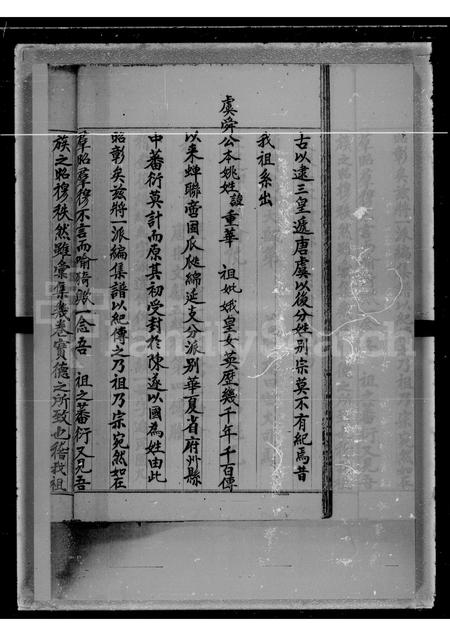 古以逮三皇遞唐虞以後分姓別宗莫不有紀焉昔
我祖系出
虞舜公本姚姓諱重華 祖妣娥皇女英歷幾千年千百傳
以來蟬聯帝國瓜瓞綿延支分派別華夏省府州縣
中蕃衍莫計而原其初受封於陳遂以國為姓由此
昭彰矣茲將一派編集譜以紀傳之乃祖乃宗宛然如在
羣昭羣穆不言而喻 一念吾 祖之蕃衍又見吾
族之昭穆秩然雖彙集幾卷實德之所致也稽我祖
FamilySearch